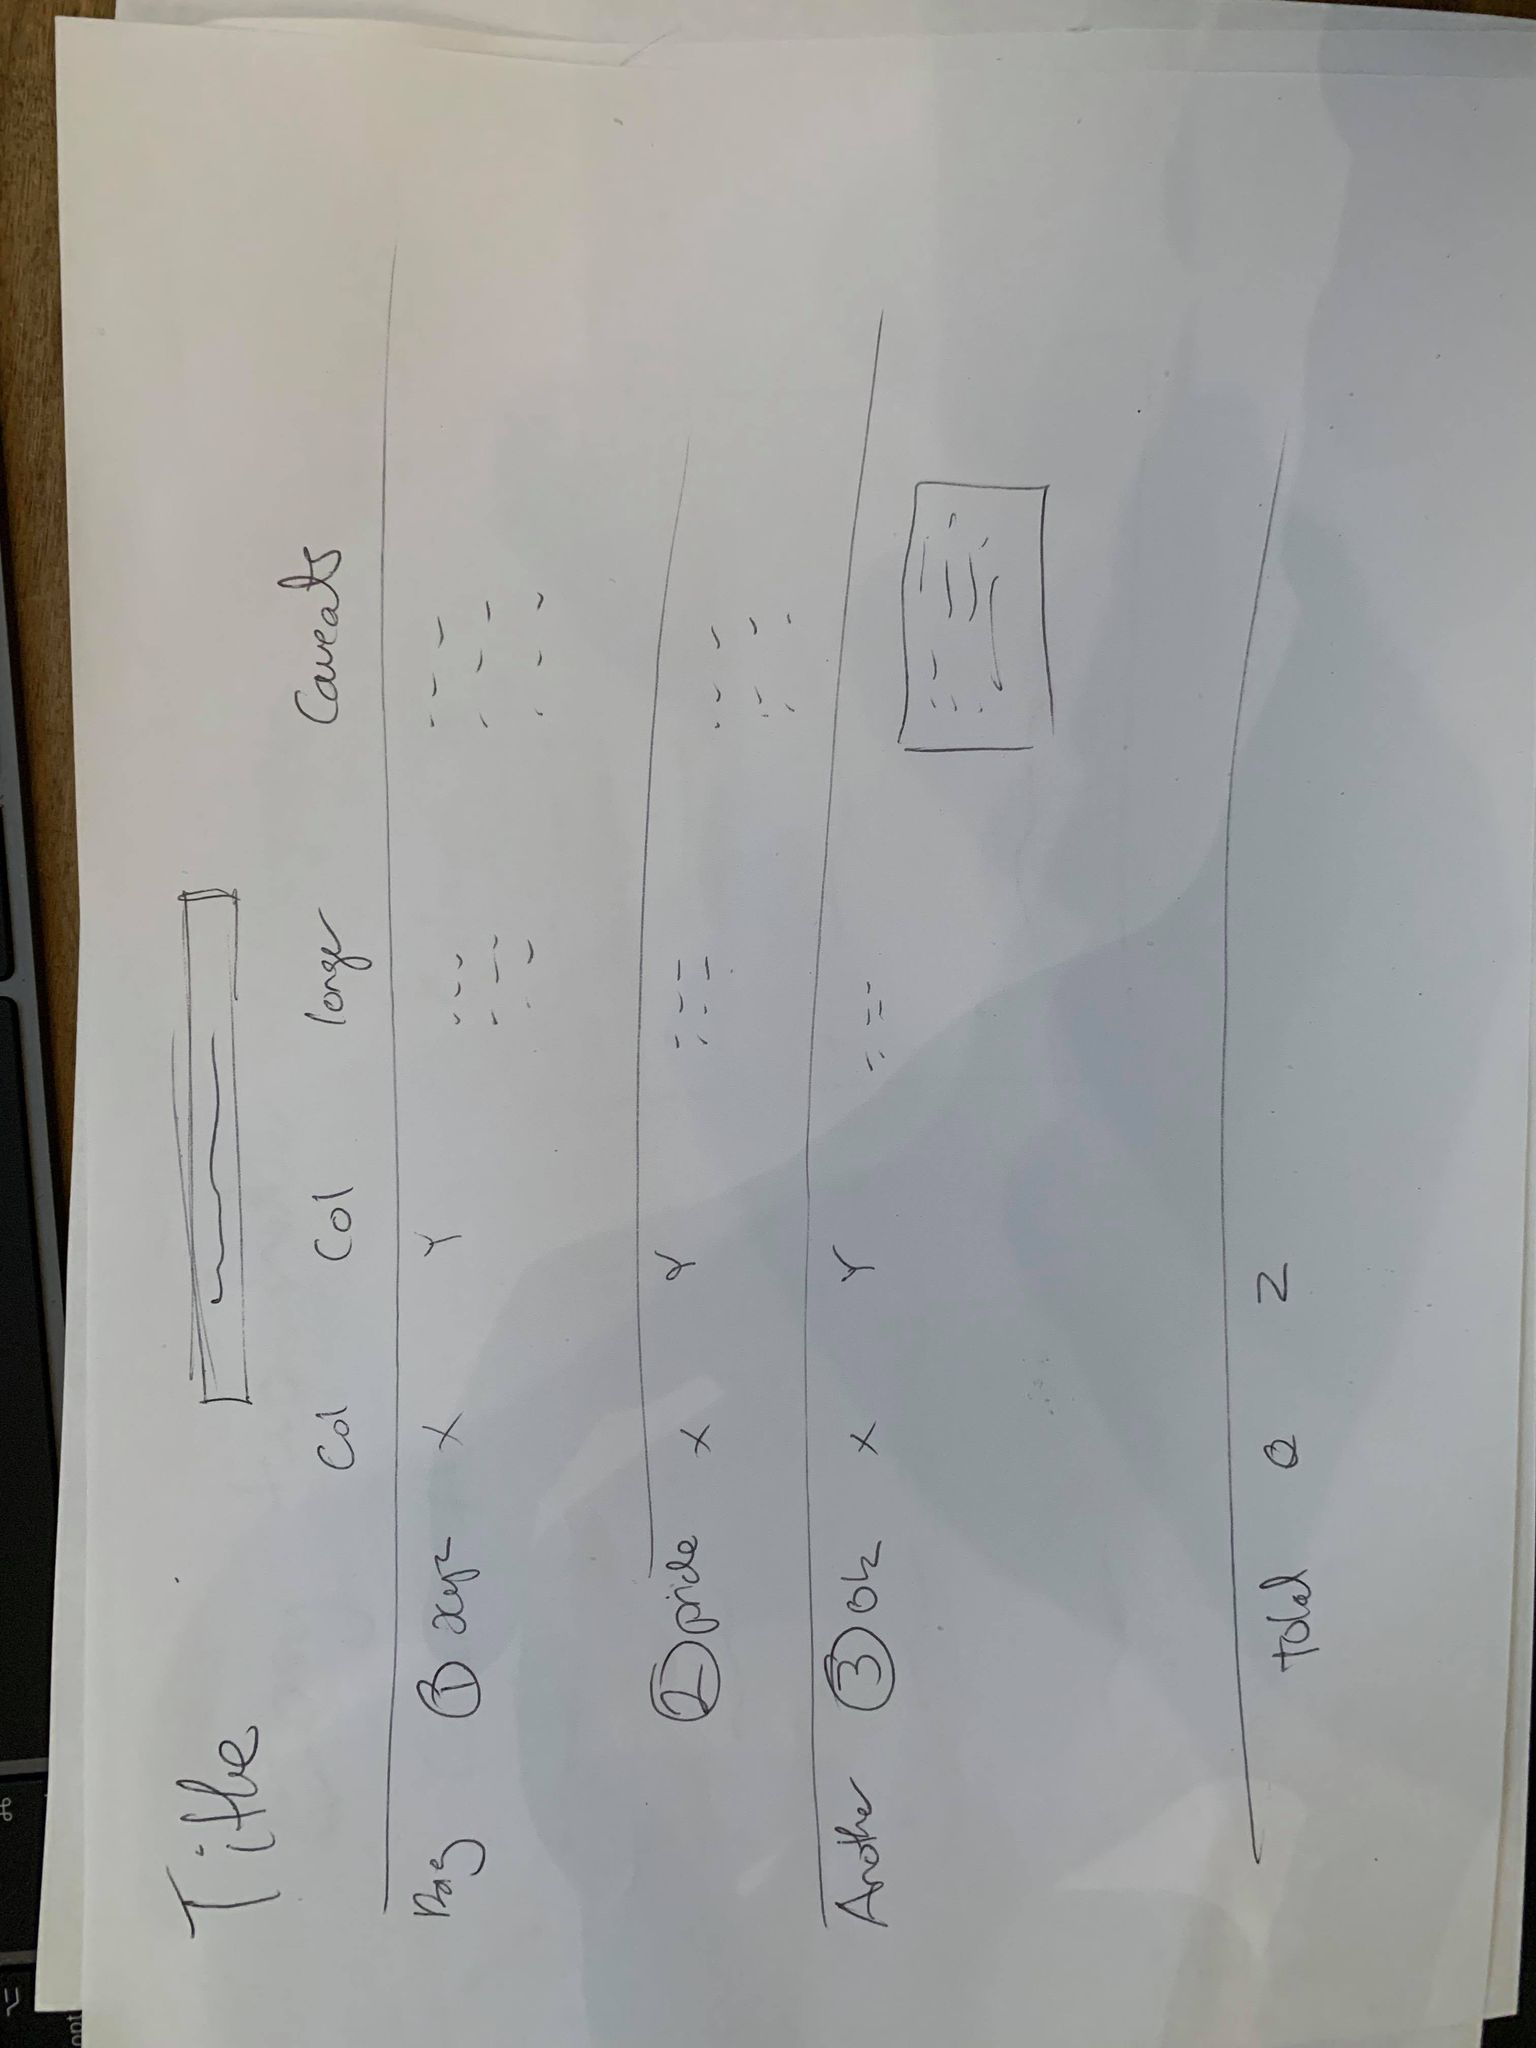 Title
Col Col longer Caveats
① xyz X Y
② pride X Y
Another ③ ok X Y
Total Q Z